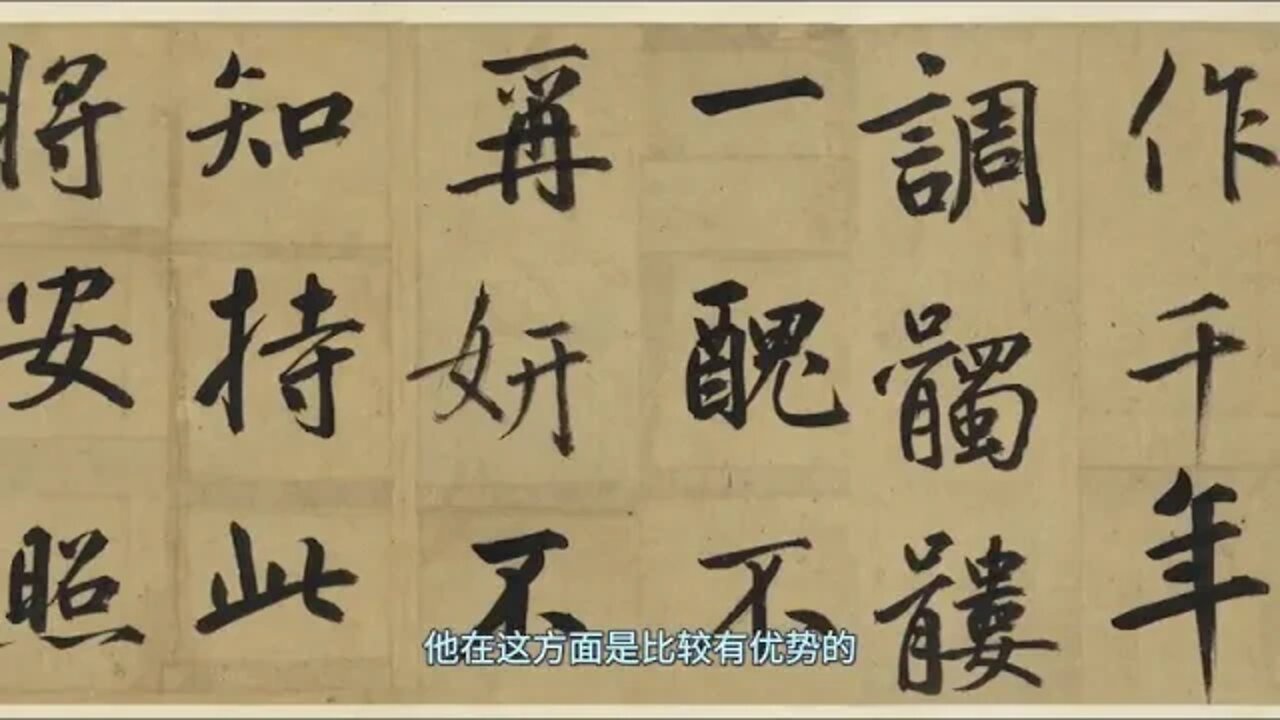 作千年
調髑髏
一醜不
再妍不
知持此
將安照
他在这方面是比较有优势的